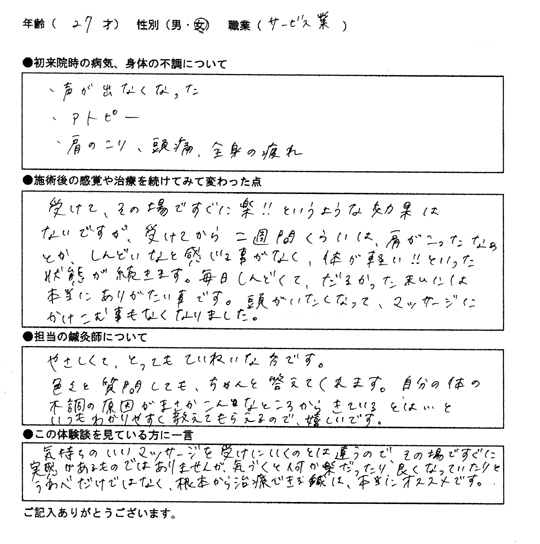 年齢（ 27 才） 性別（男・女） 職業（ サービス業 ）
●初来院時の病気、身体の不調について
・声が出なくなった
・アトピー
・肩のこり、頭痛、全身の疲れ
●施術後の感覚や治療を続けてみて変わった点
受けて、その場ですぐに楽!! というような効果は
ないですが、受けてから二週間くらいは、肩がこったなぁ
とか、しんどいなと感じる事がなく、体が軽い!!といった
状態が続きます。毎日しんどくて、だるかった私には
本当にありがたい事です。頭がいたくなって、マッサージに
かけこむ事もなくなりました。
●担当の鍼灸師について
やさしくて、とってもていねいな方です。
色々と質問しても、ちゃんと答えてくれます。自分の体の
不調の原因がまさかこんなところからきているとは
いつもわかりやすく教えてもらえるので、嬉しいです。
●この体験談を見ている方に一言
気持ちのいいマッサージを受けにいくのとは違うので、その場ですぐに
実感があるものではありませんが、気づくと何か楽だったり、良くなっていたりと
うわべだけではなく、根本から治療できる鍼は、本当にオススメです。
ご記入ありがとうございます。